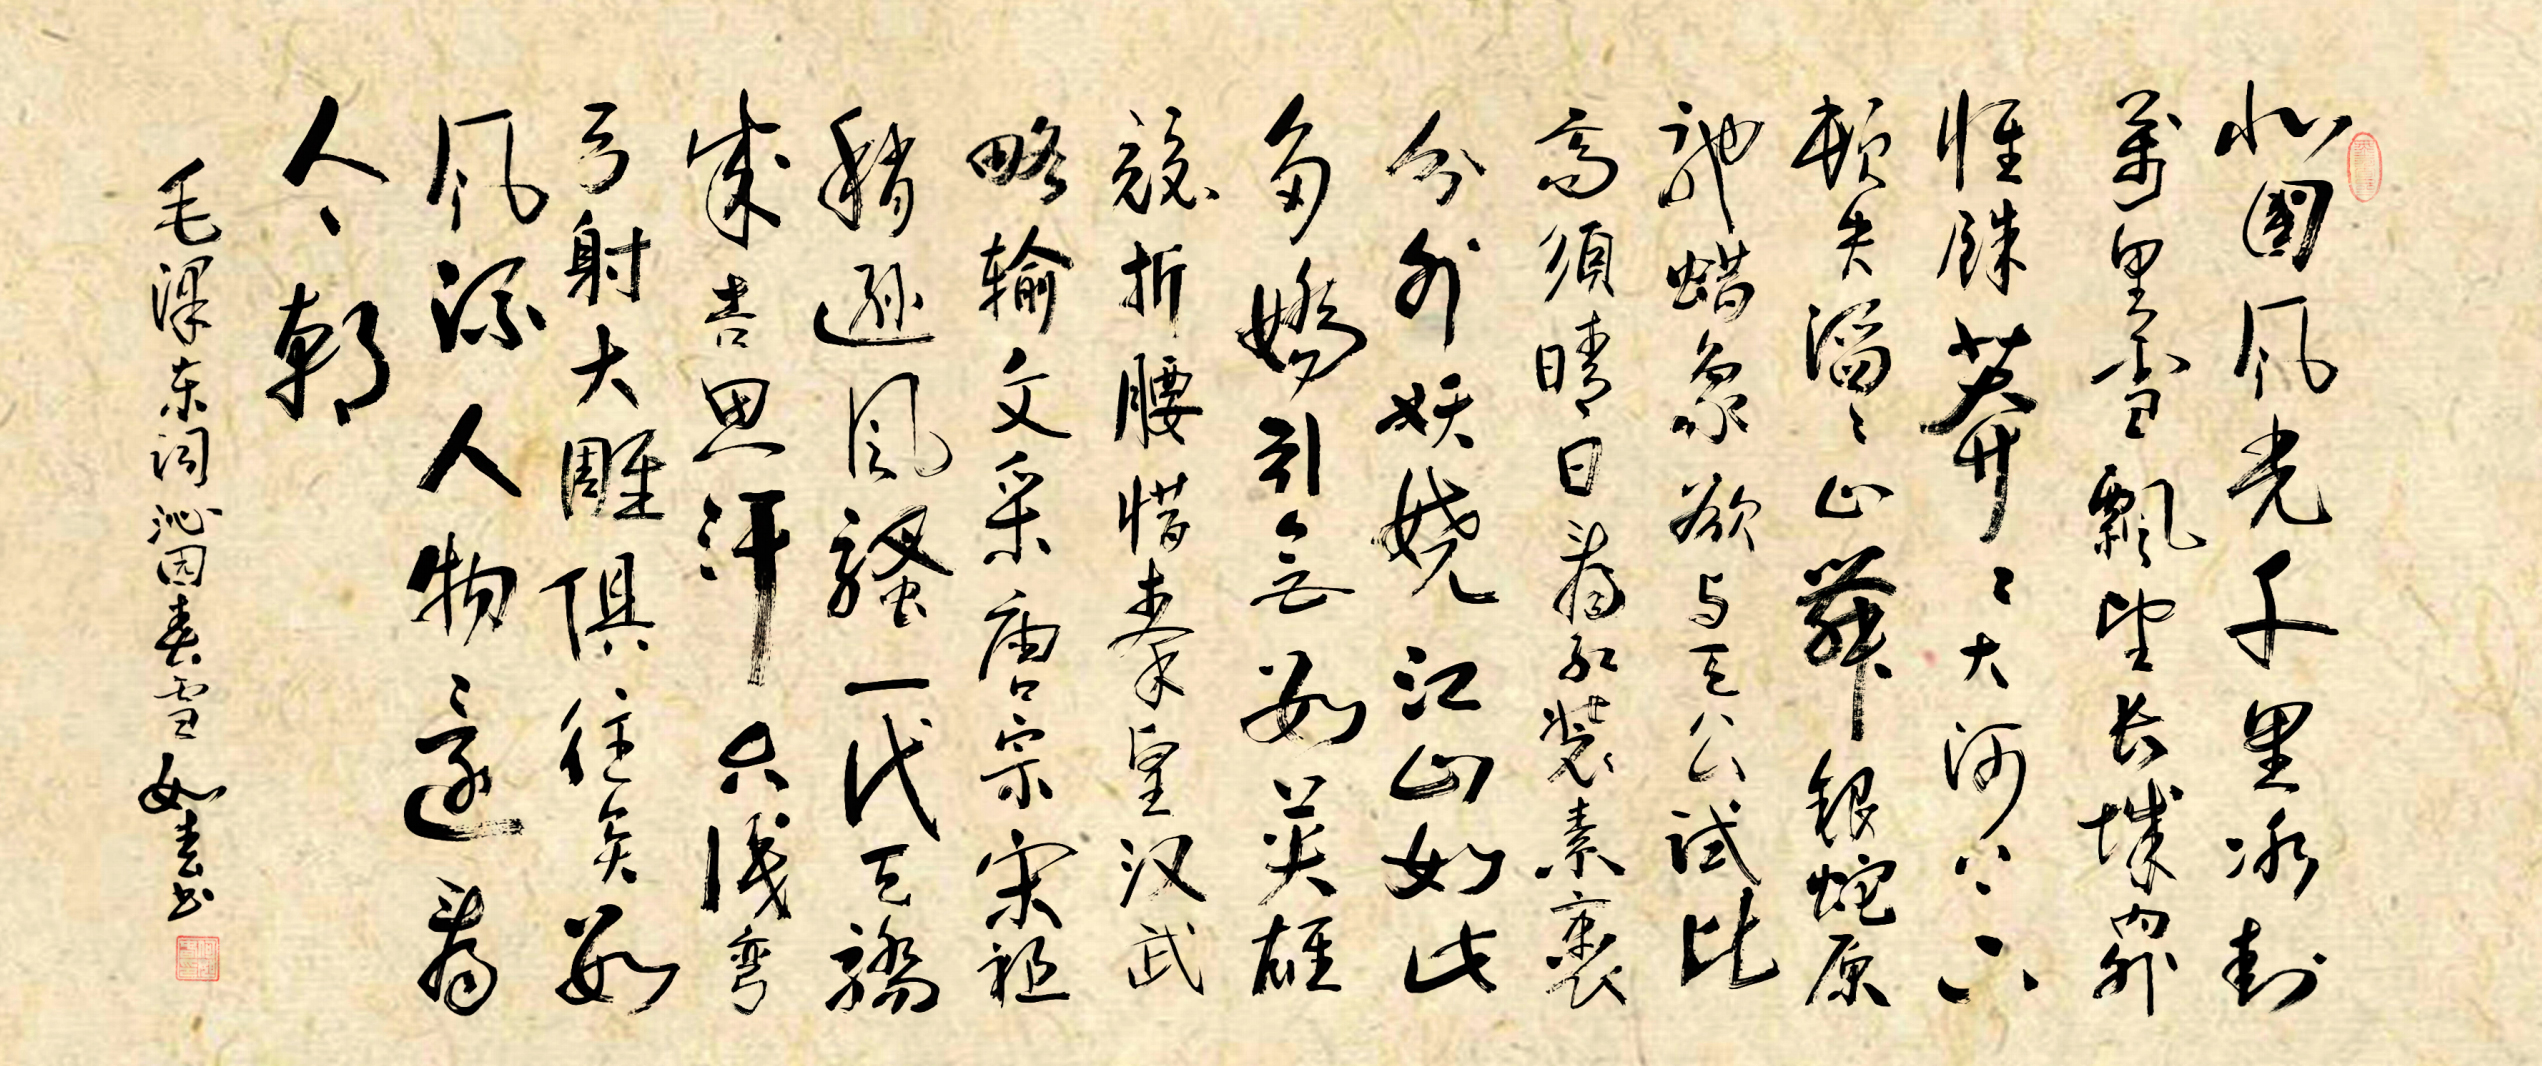 北國風光千里冰封
萬里雪飄望长城内外
惟餘莽々大河上下
頓失滔々山舞銀蛇原
驰蜡象欲与天公試比
高須晴日看红装素裹
分外妖娆江山如此
多嬌引無數英雄
競折腰惜秦皇汉武
略输文采唐宗宋祖
稍遜風騷一代天驕
成吉思汗只识弯
弓射大雕俱往矣數
風流人物還看
今朝
毛泽东词沁园春雪如书